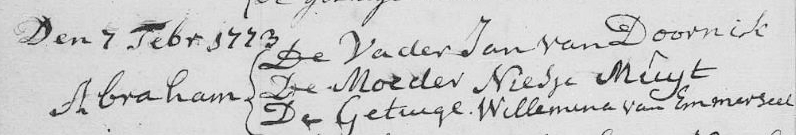 Den 7 Febr 1773
De Vader Jan van Doornik
Abraham De Moeder Niesje Muijt
De Getuige Willemina van Emmerseel